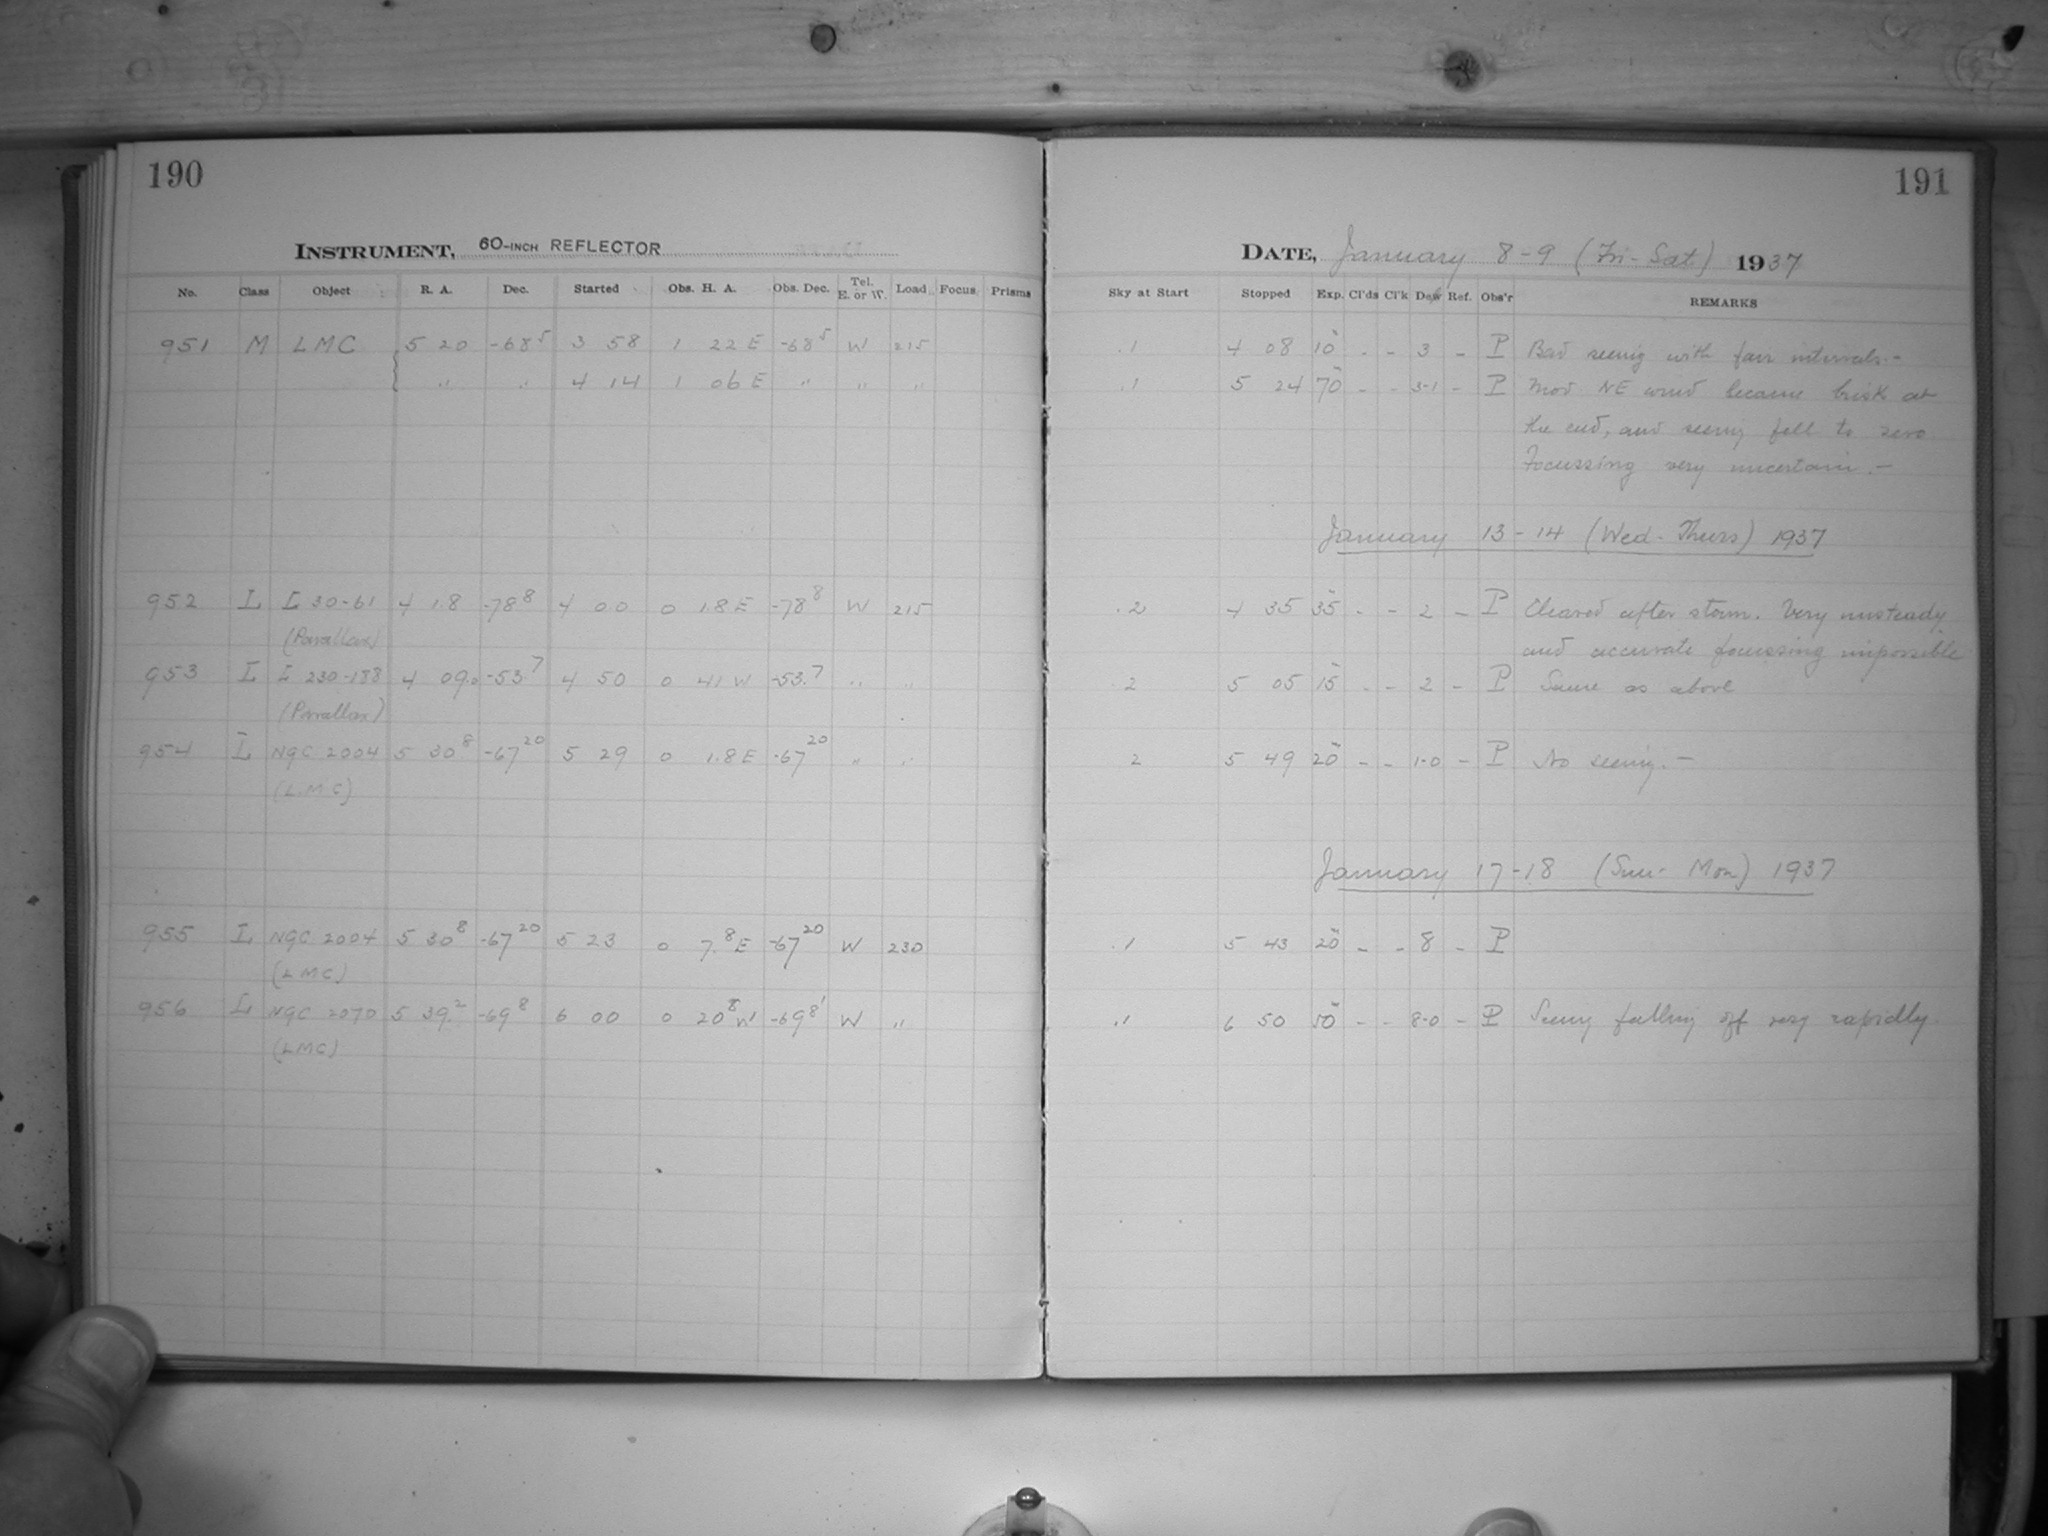 190
INSTRUMENT, 60-INCH REFLECTOR
No. Class Object R. A. Dec. Started Obs. H. A. Obs. Dec. Tel. E. or W. Load Focus Prisms
951 M LMC 5 20 -68 5 3 58 1 22 E -68 5 W 215
" " 4 14 1 06 E " " "
952 L L 30-61 4 1.8 -78 8 4 00 0 1.8 E -78 8 W 215
(Parallax)
953 L L 230-188 4 09.0 -53.7 4 50 0 41 W -53.7 " "
(Parallax)
954 L NGC 2004 5 30 8 -67 20 5 29 0 1.8 E -67 20 " "
(LMC)
955 L NGC 2004 5 30 8 -67 20 5 23 0 7.8 E -67 20 W 230
(LMC)
956 L NGC 2070 5 39.2 -69 8 6 00 0 20 8 W -69 8 W "
(LMC)
191
DATE, January 8-9 (Fri-Sat) 1937
Sky at Start Stopped Exp. Cl'ds Cl'k Dew Ref. Obs'r REMARKS
.1 4 08 10 - - 3 - P Bad seeing with fair intervals.-
.1 5 24 70 - - 3-1 - P Mod NE wind became brisk at
the end, and seeing fell to zero
Focussing very uncertain.-
January 13-14 (Wed-Thurs) 1937
.2 4 35 35 - - 2 - P Cleared after storm. Very unsteady
and accurate focussing impossible
.2 5 05 15 - - 2 - P Same as above
2 5 49 20 - - 1-0 - P No seeing.-
January 17-18 (Sun-Mon) 1937
.1 5 43 20 - - 8 - P
.1 6 50 50 - - 8-0 - P Seeing falling off very rapidly